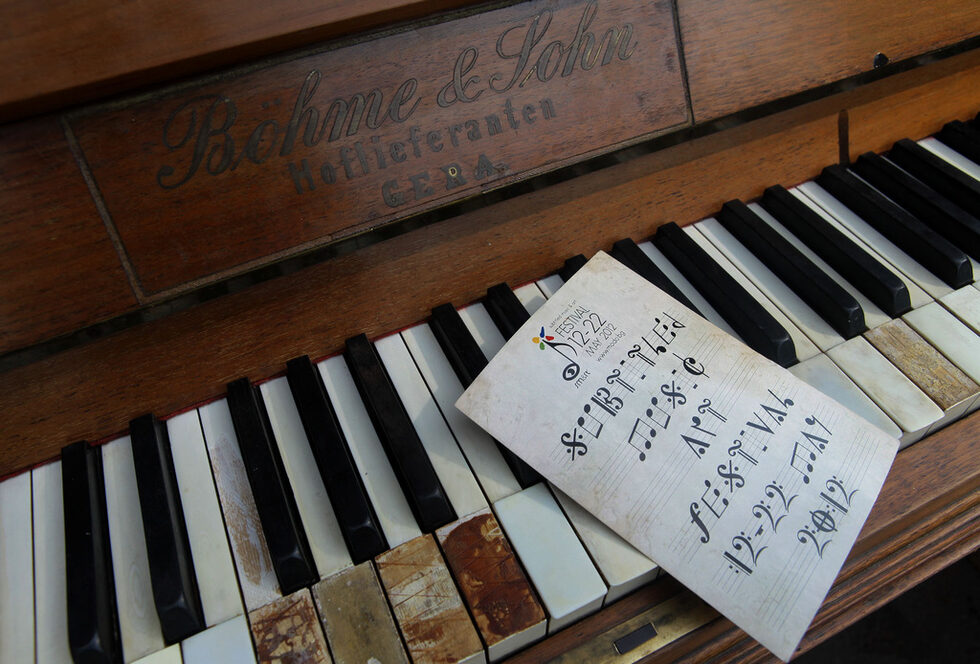 Böhme & Sohn
Hoflieferanten
GERA.
FESTIVAL
12-22
MAY 2012
www.modo.bg
SUBTITLED
MUSIC
ART
FESTIVAL
12-22 MAY
2012